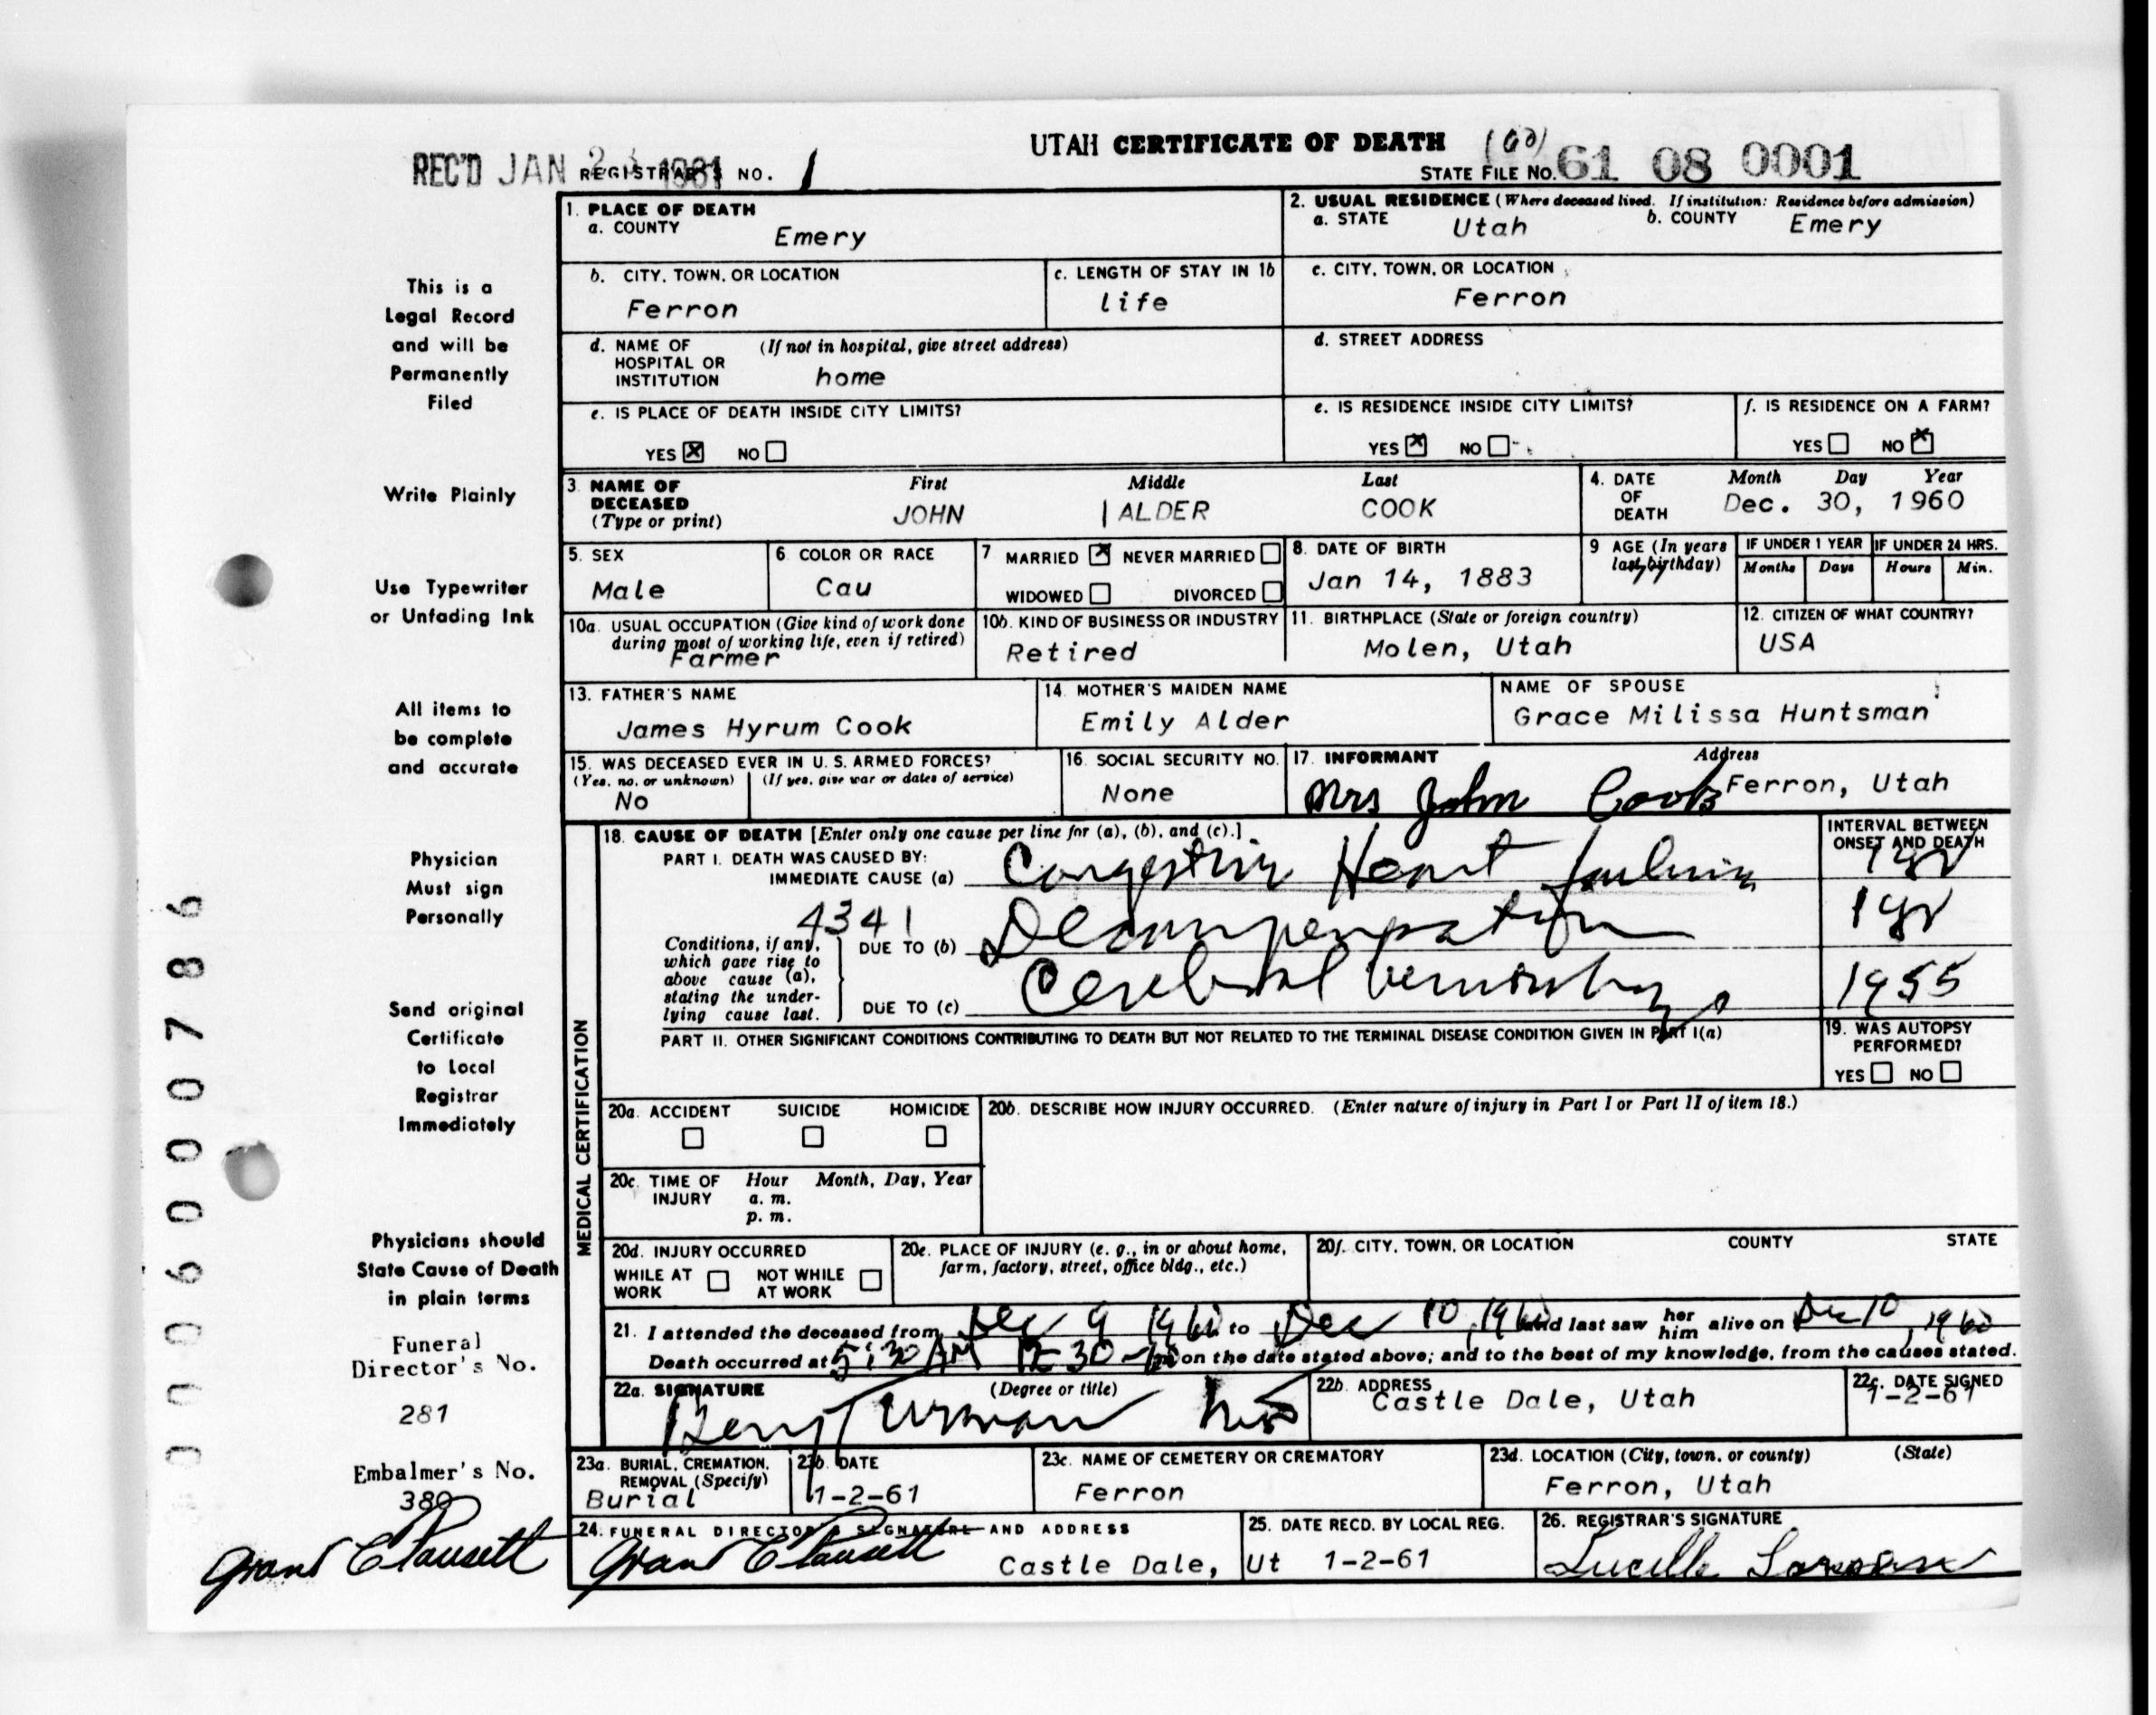 UTAH CERTIFICATE OF DEATH (60)
REC'D JAN 23 1961 REGISTRAR'S NO. 1 STATE FILE No. 61 08 0001
1. PLACE OF DEATH
a. COUNTY
Emery
2. USUAL RESIDENCE (Where deceased lived. If institution: Residence before admission)
a. STATE Utah b. COUNTY Emery
b. CITY, TOWN, OR LOCATION
Ferron
c. LENGTH OF STAY IN 1b
life
c. CITY, TOWN, OR LOCATION
Ferron
d. NAME OF HOSPITAL OR INSTITUTION (If not in hospital, give street address)
home
d. STREET ADDRESS
e. IS PLACE OF DEATH INSIDE CITY LIMITS?
YES X NO
e. IS RESIDENCE INSIDE CITY LIMITS?
YES X NO
f. IS RESIDENCE ON A FARM?
YES NO X
3. NAME OF DECEASED (Type or print)
First Middle Last
JOHN ALDER COOK
4. DATE OF DEATH
Month Day Year
Dec. 30, 1960
5. SEX
Male
6. COLOR OR RACE
Cau
7 MARRIED X NEVER MARRIED
WIDOWED DIVORCED
8. DATE OF BIRTH
Jan 14, 1883
9 AGE (In years last birthday)
77
IF UNDER 1 YEAR IF UNDER 24 HRS.
Months Days Hours Min.
10a. USUAL OCCUPATION (Give kind of work done
during most of working life, even if retired)
Farmer
10b. KIND OF BUSINESS OR INDUSTRY
Retired
11. BIRTHPLACE (State or foreign country)
Molen, Utah
12. CITIZEN OF WHAT COUNTRY?
USA
13. FATHER'S NAME
James Hyrum Cook
14. MOTHER'S MAIDEN NAME
Emily Alder
NAME OF SPOUSE
Grace Milissa Huntsman
15. WAS DECEASED EVER IN U.S. ARMED FORCES?
(Yes, no, or unknown) (If yes, give war or dates of service)
No
16. SOCIAL SECURITY NO.
None
17. INFORMANT Address
Mrs John Cook Ferron, Utah
MEDICAL CERTIFICATION
18. CAUSE OF DEATH [Enter only one cause per line for (a), (b), and (c).]
INTERVAL BETWEEN ONSET AND DEATH
PART I. DEATH WAS CAUSED BY:
IMMEDIATE CAUSE (a) Congestive Heart failure 1 yr
4341
Conditions, if any, which gave rise to above cause (a), stating the underlying cause last.
DUE TO (b) Decompensation 1 yr
DUE TO (c) Cerebral hemorrhage 1955
PART II. OTHER SIGNIFICANT CONDITIONS CONTRIBUTING TO DEATH BUT NOT RELATED TO THE TERMINAL DISEASE CONDITION GIVEN IN PART I(a)
19. WAS AUTOPSY PERFORMED?
YES NO
20a. ACCIDENT SUICIDE HOMICIDE
20b. DESCRIBE HOW INJURY OCCURRED. (Enter nature of injury in Part I or Part II of item 18.)
20c. TIME OF INJURY Hour Month, Day, Year
a. m.
p. m.
20d. INJURY OCCURRED
WHILE AT WORK NOT WHILE AT WORK
20e. PLACE OF INJURY (e. g., in or about home,
farm, factory, street, office bldg., etc.)
20f. CITY, TOWN, OR LOCATION COUNTY STATE
21. I attended the deceased from Dec 9 1960 to Dec 10, 1960 and last saw her him alive on Dec 10, 1960
Death occurred at 5:30 AM 12-30-60 on the date stated above; and to the best of my knowledge, from the causes stated.
22a. SIGNATURE (Degree or title)
Turman MD
22b. ADDRESS
Castle Dale, Utah
22c. DATE SIGNED
1-2-61
23a. BURIAL, CREMATION, REMOVAL (Specify)
Burial
23b. DATE
1-2-61
23c. NAME OF CEMETERY OR CREMATORY
Ferron
23d. LOCATION (City, town, or county) (State)
Ferron, Utah
24. FUNERAL DIRECTOR'S SIGNATURE AND ADDRESS
Castle Dale, Ut
25. DATE RECD. BY LOCAL REG.
1-2-61
26. REGISTRAR'S SIGNATURE
Lucille
This is a
Legal Record
and will be
Permanently
Filed
Write Plainly
Use Typewriter
or Unfading Ink
All items to
be complete
and accurate
Physician
Must sign
Personally
Send original
Certificate
to Local
Registrar
Immediately
Physicians should
State Cause of Death
in plain terms
Funeral
Director's No.
281
Embalmer's No.
380
0006000786